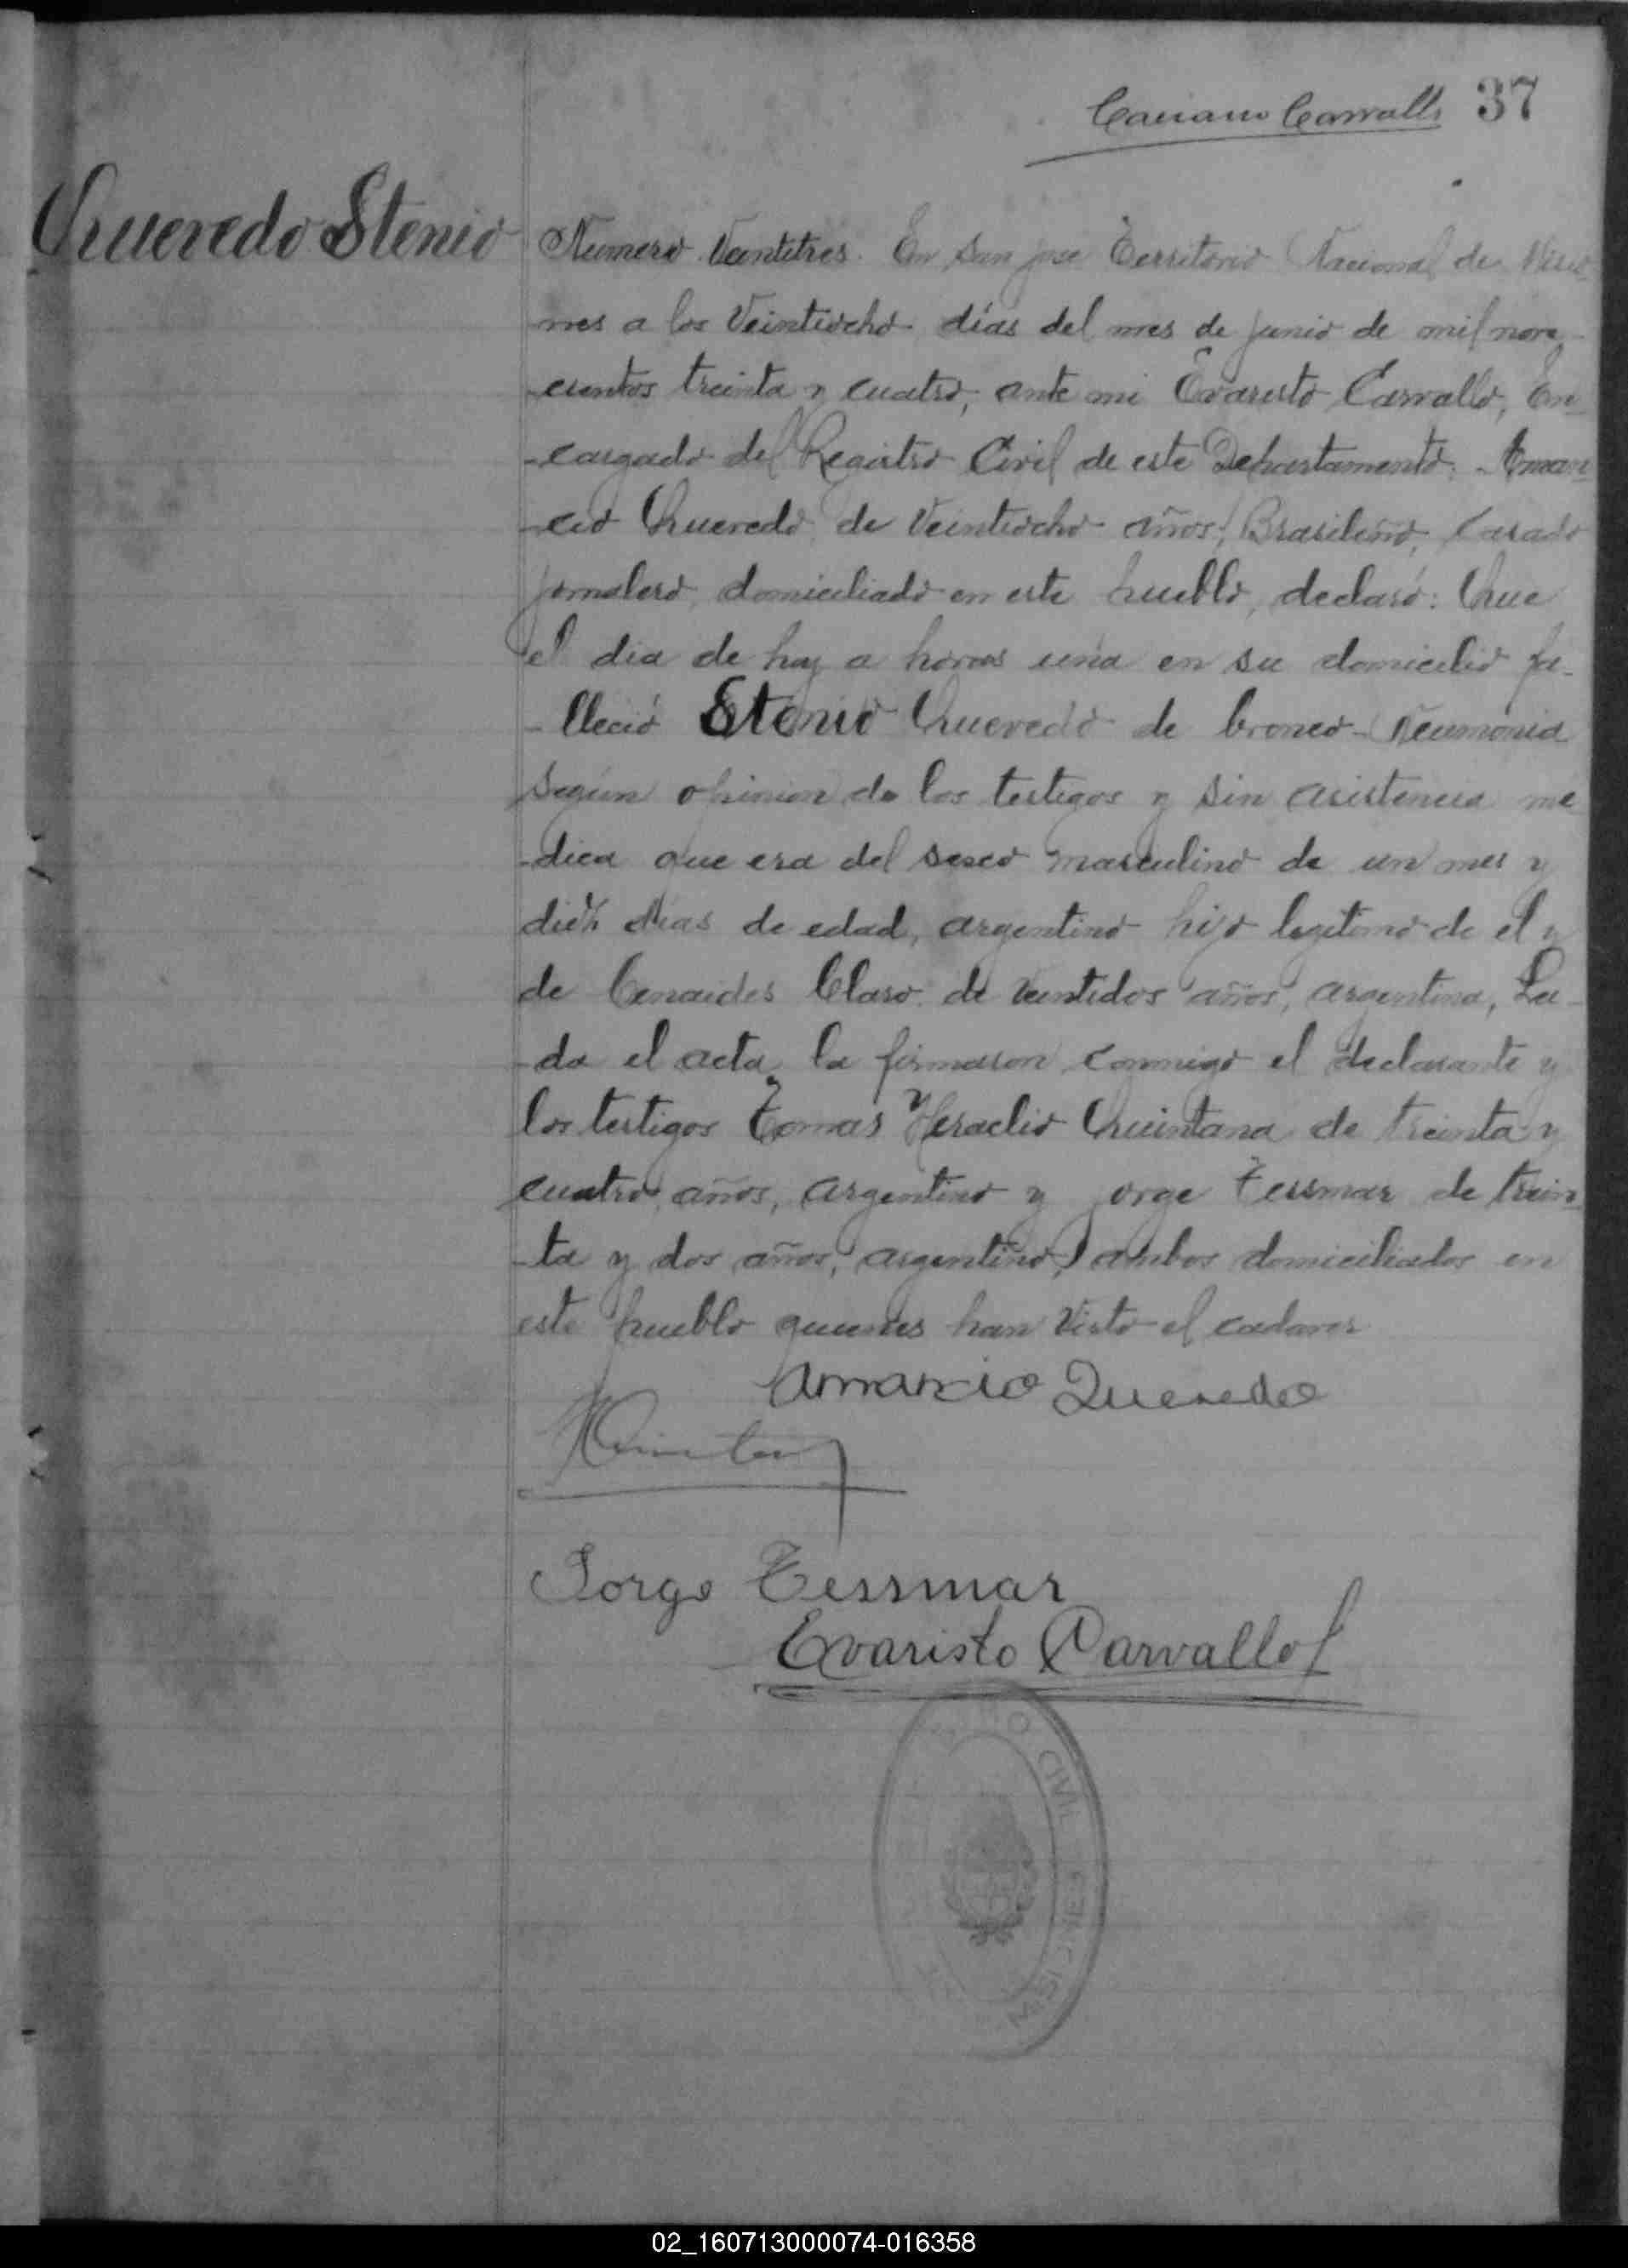 Caciano Carvallo 37
Quevedo Stenio
Numero Veintitres. En San jose Territorio Nacional de Misio
nes a los Veintiocho días del mes de junio de mil nove
-cientos treinta y cuatro, ante mi Evaristo Carvallo, En
-cargado del Registro Civil de este Departamento: Aman
-cio Quevedo de Veintiocho años, Brasileño, Casado
jornalero, domiciliado en este pueblo, declaró: Que
el dia de hoy a horas una en su domicilio fa-
-lleció Stenio Quevedo de bronco-Neumonia
segun opinion de los testigos y sin asistencia mé
-dica que era del sexo masculino de un mes y
diez días de edad, argentino hijo legitimo de el y
de Cenaides Claro de veintidos años, argentina, Lei-
-da el acta la firmaron conmigo el declarante y
los testigos Tomás Heraclio Quintana de treinta y
cuatro años, argentino y jorge Tessmar de trein
-ta y dos años, argentino, ambos domiciliados en
este pueblo quienes han visto el cadaver
Amancio Quevedo
Jorge Tessmar
Evaristo Carvallo
REGISTRO CIVIL
MISIONES
02_160713000074-016358